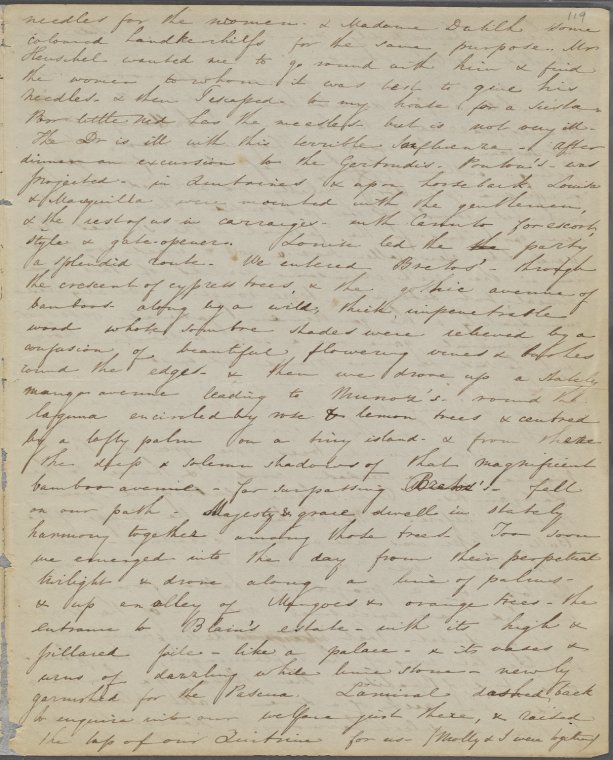 119
needles for the women. & Madame Dutilh some
coloured handkerchiefs for the same purpose. Mr
Henschel wanted me to go round with him & find
the women to whom it was best to give his
needles. & then I escaped to my house for a siesta.
Poor little Ned has the measles but is not very ill.
The Dr is ill with this terrible Influenza. After
dinner an excursion to the Gertrudis. Pouton's was
projected - in Quitrines & upon horseback. Louise
& Marquilla were mounted with the gentlemen,
& the rest of us in carraiges - with Camuto for escort,
style & gate-opener. Louise led the the party
a splendid route. We entered Breto's - through
the crescent of cypress trees, & the gothic avenue of
bamboos along by a wild, thick, impenetrable
wood whose sombre shades were relieved by a
confusion of beautiful flowering vines & bushes
round the edges - & then we drove up a stately
mango avenue leading to Munoz's. round the
laguna encircled by rose & lemon trees & centred
by a lofty palm on a tiny island - & from there
the deep & solemn shadows of that magnificent
bamboo avenue - far surpassing Breto's - fell
on our path - Majesty & grace dwell in stately
harmony together among those trees. Too soon
we emerged into the day from their perpetual
twilight & drove along a line of palms -
& up an alley of Mangoes & orange trees - the
entrance to Blain's estate - with its high &
pillared pile - like a palace - & its vases &
urns of dazzling white lime stone - newly
garnished for the Pascua. Ladmiral dashed back
to enquire into our welfare just there, & raised
the top of our Quitrine for us (Molly & I were together)